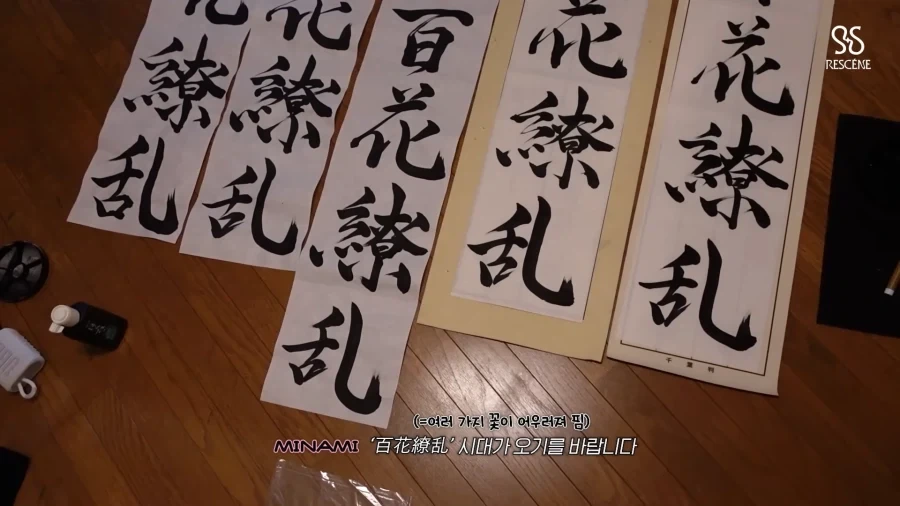 RESCÈNE
花繚乱
花繚乱
百花繚乱
花繚乱
花繚乱
(=여러 가지 꽃이 어우러져 핌)
MINAMI '百花繚乱' 시대가 오기를 바랍니다